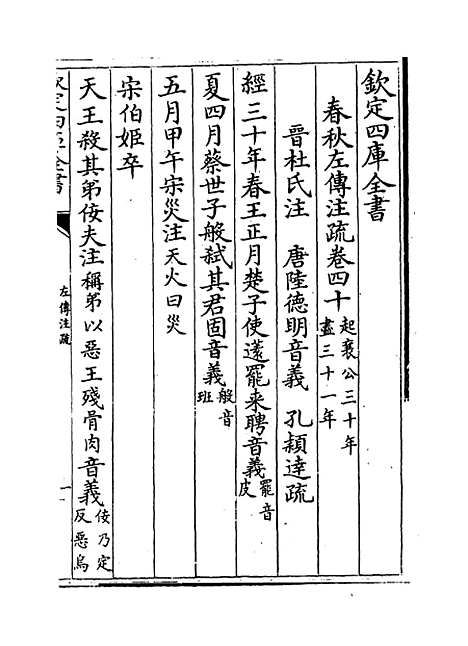 欽定四庫全書
春秋左傳注疏卷四十起襄公三十年盡三十一年
晉杜氏注　唐陸德明音義　孔頴達疏
經三十年春王正月楚子使薳罷来聘音義罷音皮
夏四月蔡世子般弑其君固音義般音班
五月甲午宋災注天火曰災
宋伯姬卒
天王殺其弟佞夫注稱弟以惡王殘骨肉音義佞乃定反惡烏
欽定四庫全書
左傳注疏
一